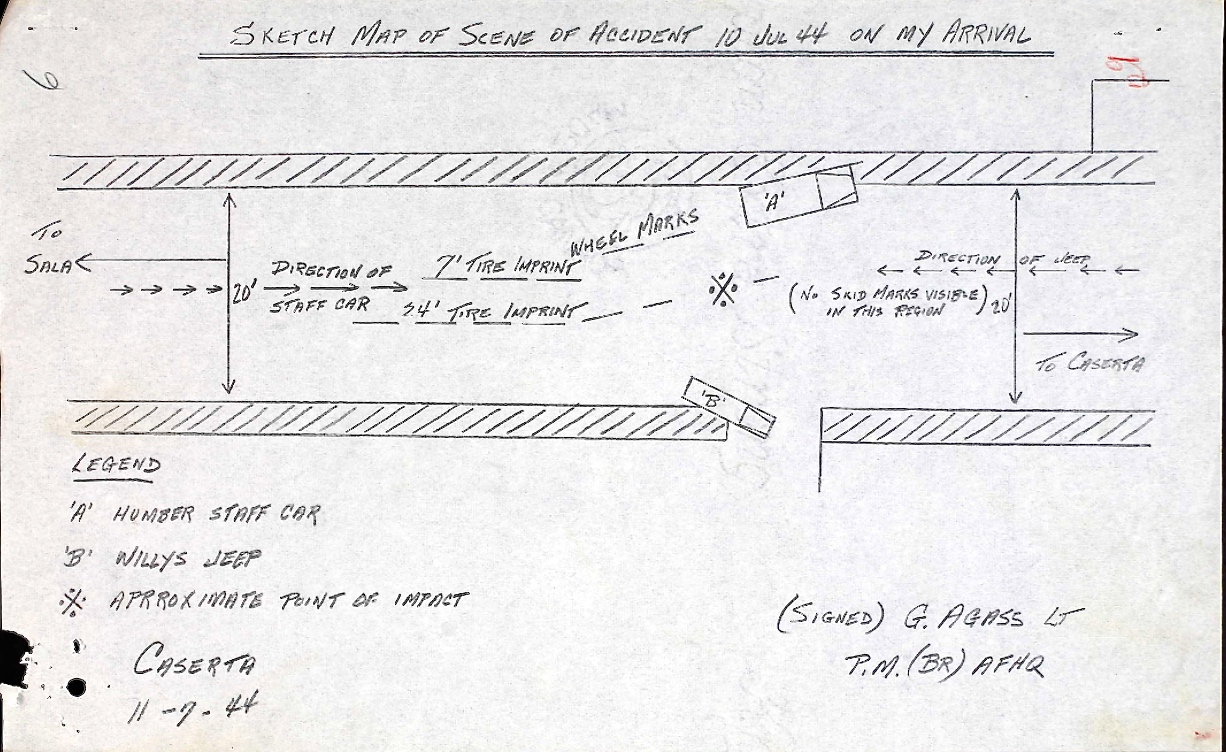 SKETCH MAP OF SCENE OF ACCIDENT 10 JUL 44 ON MY ARRIVAL
6
19
'A'
TO
SALA
DIRECTION OF
STAFF CAR
20'
7' TIRE IMPRINT
WHEEL MARKS
24' TIRE IMPRINT
DIRECTION OF JEEP
(NO SKID MARKS VISIBLE)
IN THIS REGION
20'
TO CASERTA
'B'
LEGEND
'A' HUMBER STAFF CAR
'B' WILLYS JEEP
※ APPROXIMATE POINT OF IMPACT
CASERTA
11-7-44
(SIGNED) G. AGASS LT
P.M. (BR) AFHQ